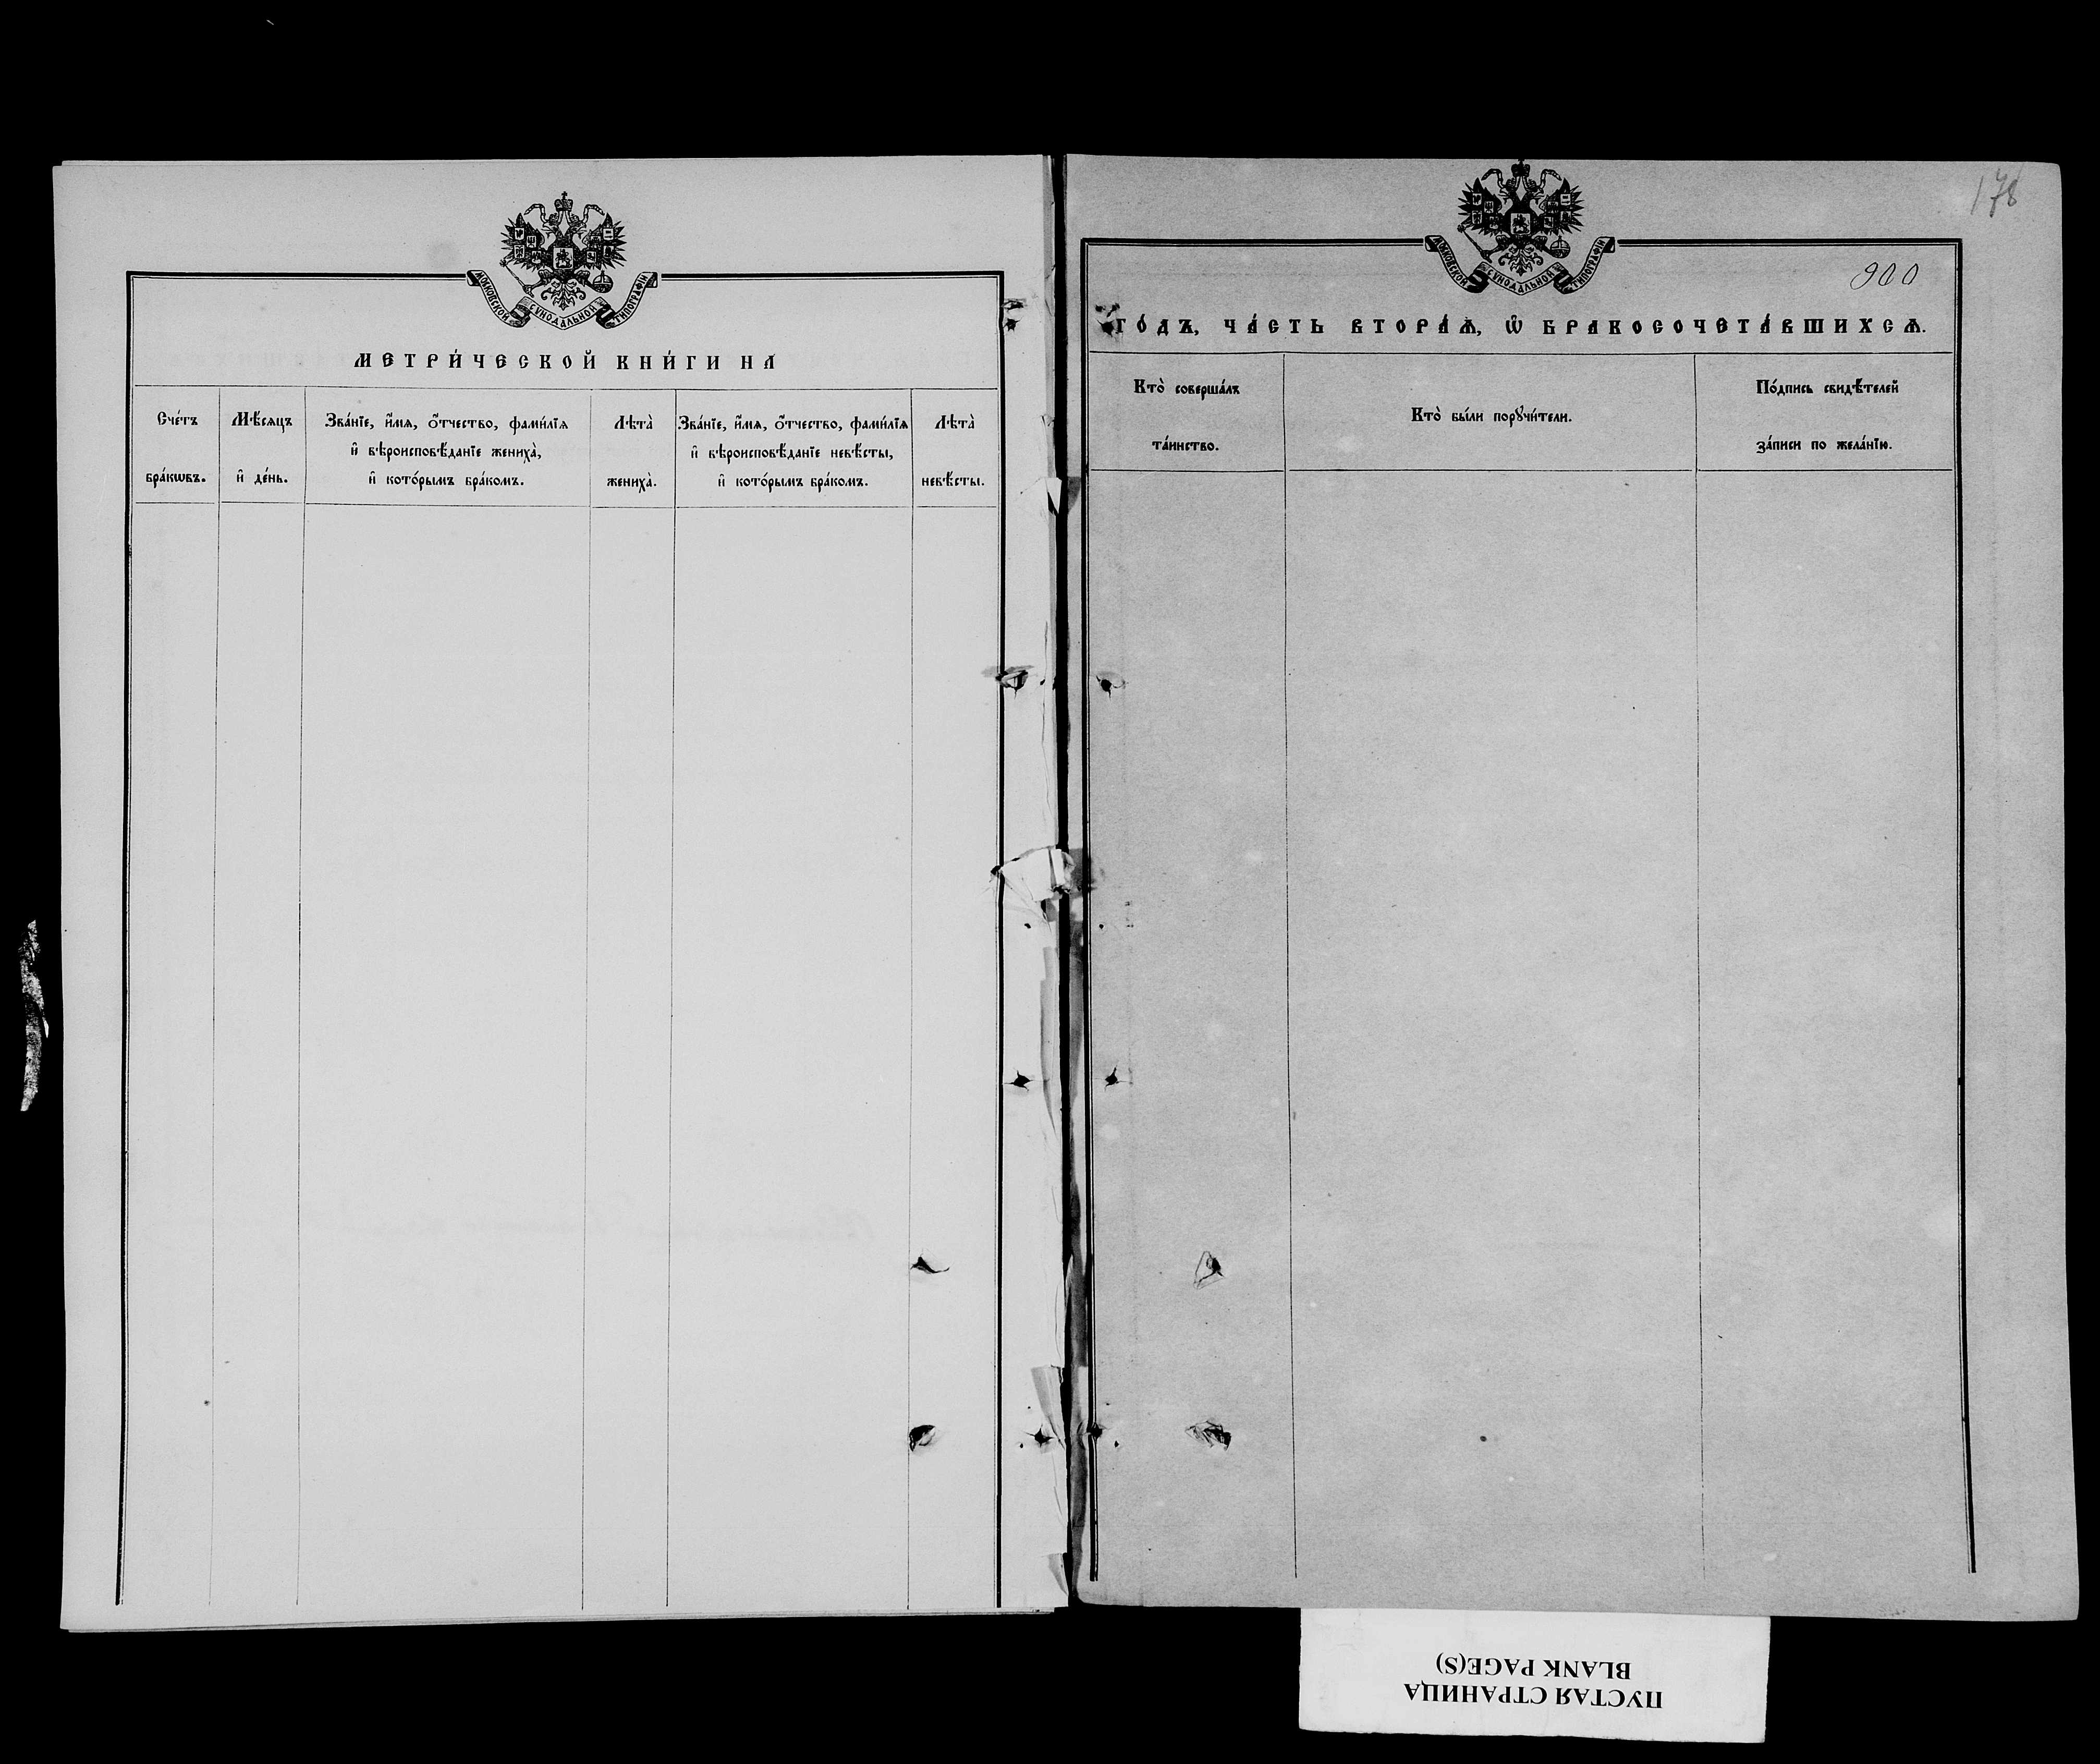 МОСКОВСКОЙ СѴНОДАЛЬНОЙ ТИПОГРАФІИ
МЕТРИ́ЧЕСКОЙ КНИ́ГИ НА
Сче́тъ
бра́кѡвъ.
Мѣ́сяцъ
и҆ де́нь.
Зва́нїе, и҆́мя, о҆́тчество, фами́лїя
и҆ вѣроисповѣ́данїе жениха̀,
и҆ кото́рымъ бра́комъ.
Лѣта̀
жениха̀.
Зва́нїе, и҆́мя, о҆́тчество, фами́лїя
и҆ вѣроисповѣ́данїе невѣ́сты,
и҆ кото́рымъ бра́комъ.
Лѣта̀
невѣ́сты.
178
МОСКОВСКОЙ СѴНОДАЛЬНОЙ ТИПОГРАФІИ
900
ГО́ДЪ, ЧА́СТЬ ВТОРА́Ѧ, Ѡ҆ БРАКОСОЧЕТА́ВШИХСѦ.
Кто̀ соверша́лъ
та́инство.
Кто̀ бы́ли порꙋчи́тели.
По́дпись свидѣ́телей
за́писи по жела́нїю.
ПУСТАЯ СТРАНИЦА
BLANK PAGE(S)